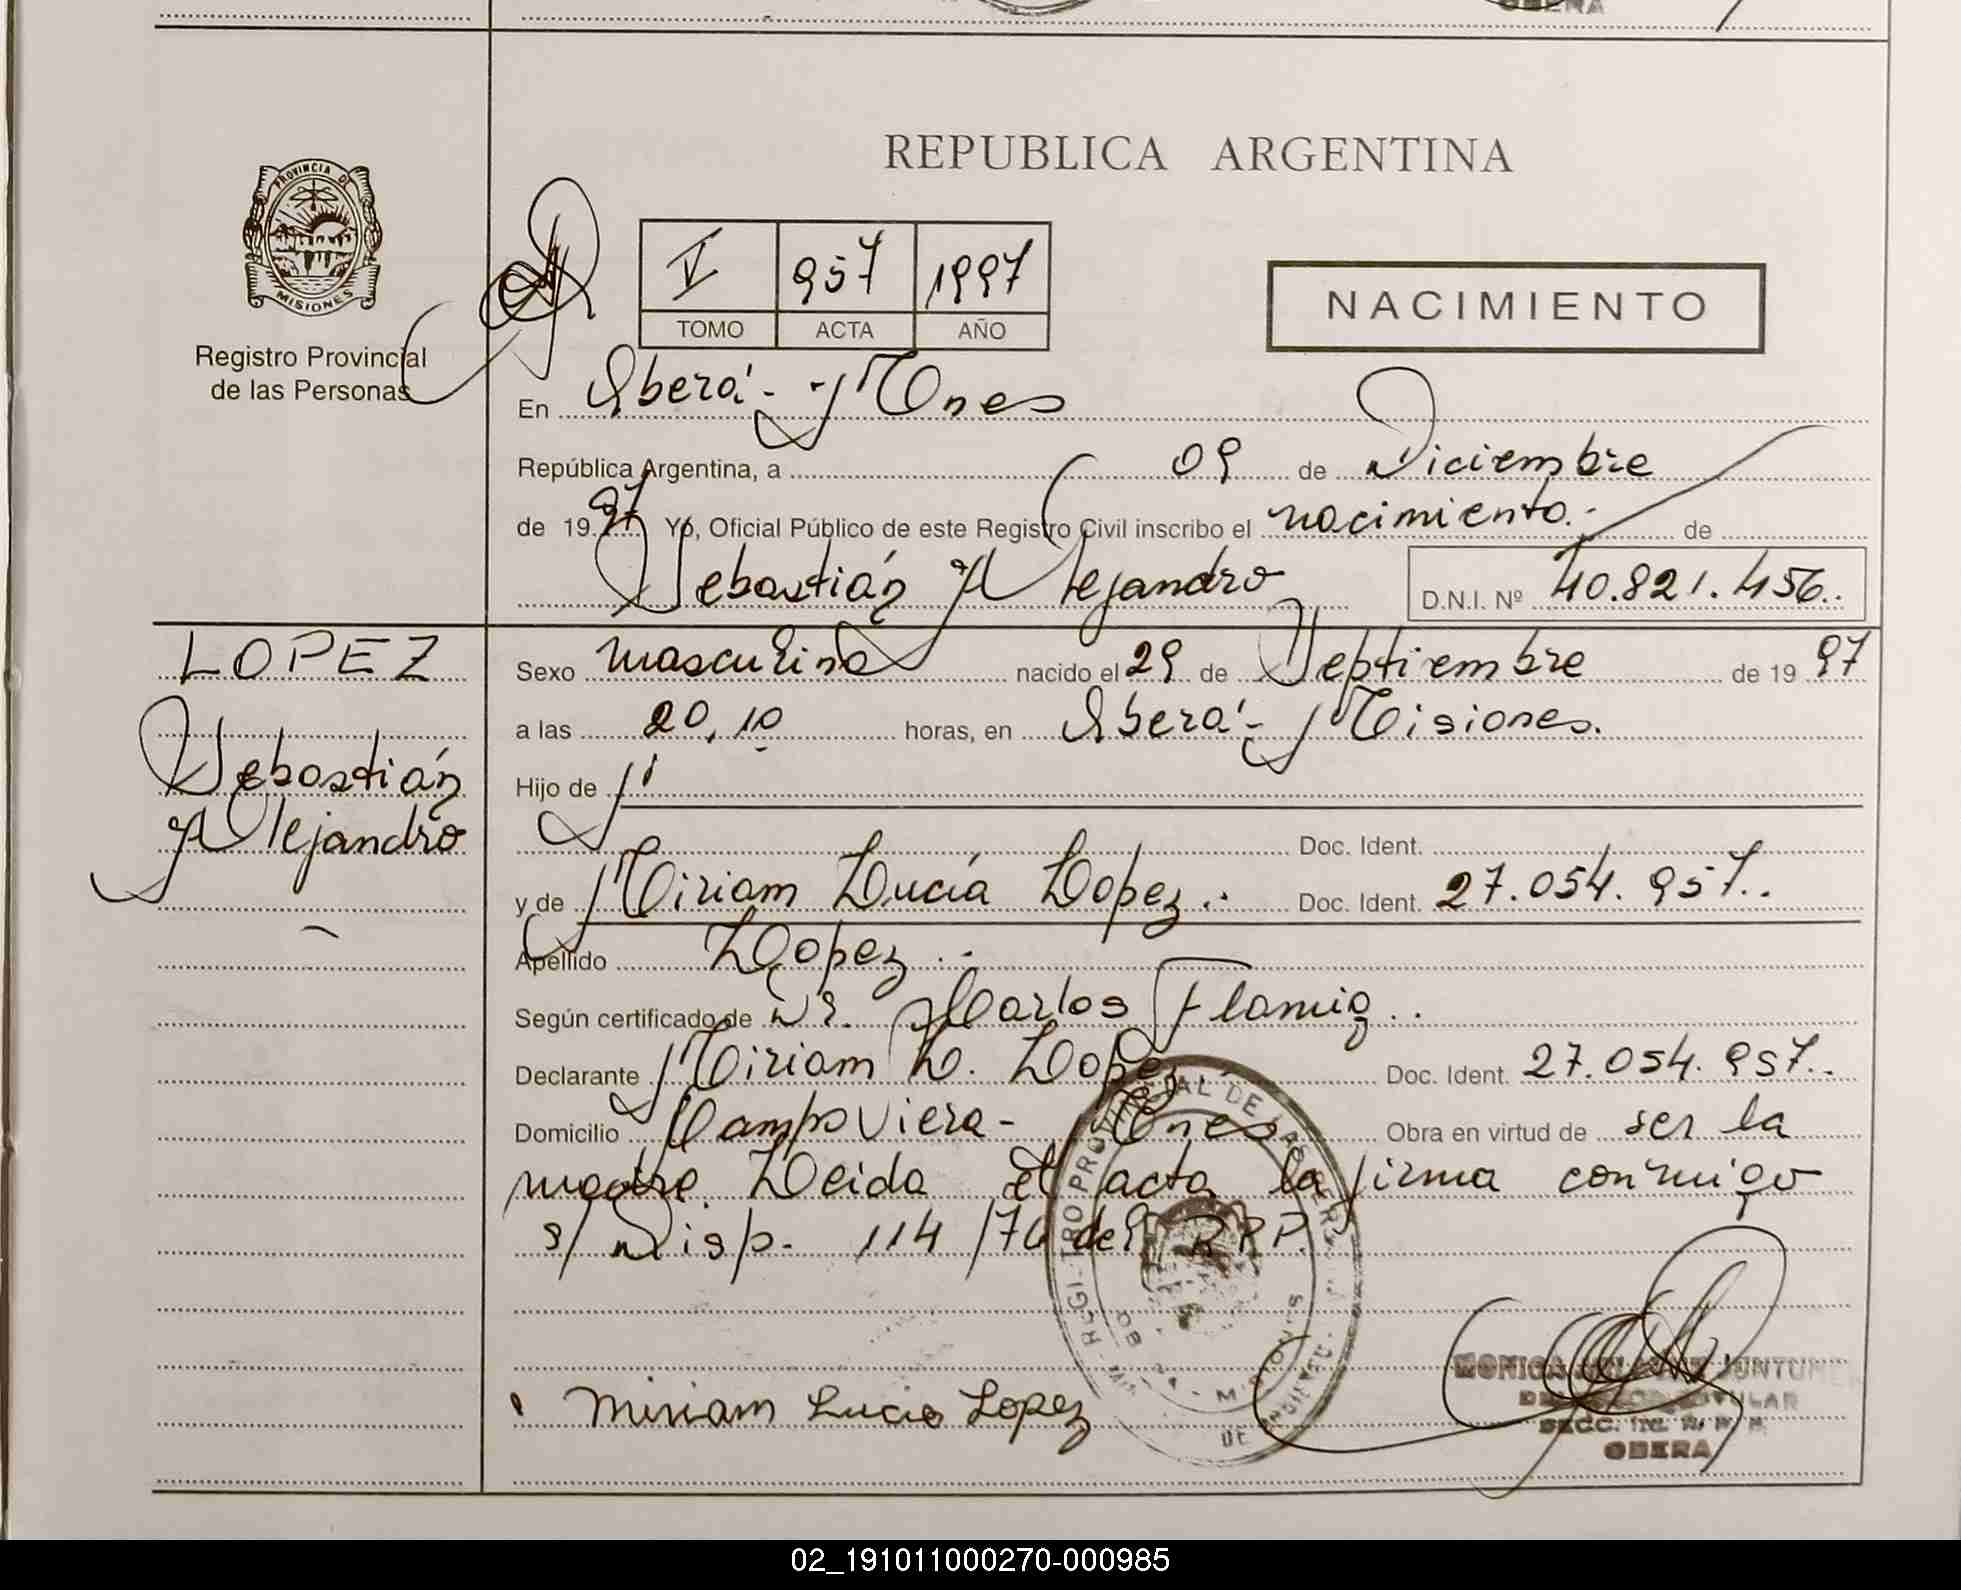 OBERA
REPUBLICA ARGENTINA
PROVINCIA DE
MISIONES
Registro Provincial
de las Personas
V 957 1997
TOMO ACTA AÑO
NACIMIENTO
En Oberá - Mnes
República Argentina, a 09 de Diciembre
de 19 97 Yo, Oficial Público de este Registro Civil inscribo el nacimiento.- de
Sebastián Alejandro D.N.I. Nº 40.821.456..
LOPEZ
Sebastián
Alejandro
Sexo masculino nacido el 29 de Septiembre de 19 97
a las 20,10 horas, en Oberá - Misiones.
Hijo de
Doc. Ident.
y de Miriam Lucía Lopez.. Doc. Ident. 27.054.957..
Apellido Lopez..
Según certificado de Dr. Carlos Flamig..
Declarante Miriam L. Lopez Doc. Ident. 27.054.957..
Domicilio Campo Viera - Mnes Obra en virtud de ser la
madre. Leida el acta la firma conmigo
s/ Disp. 114/76 del RPP.
Miriam Lucia Lopez
MONICA
SECC.
OBERA
02_191011000270-000985